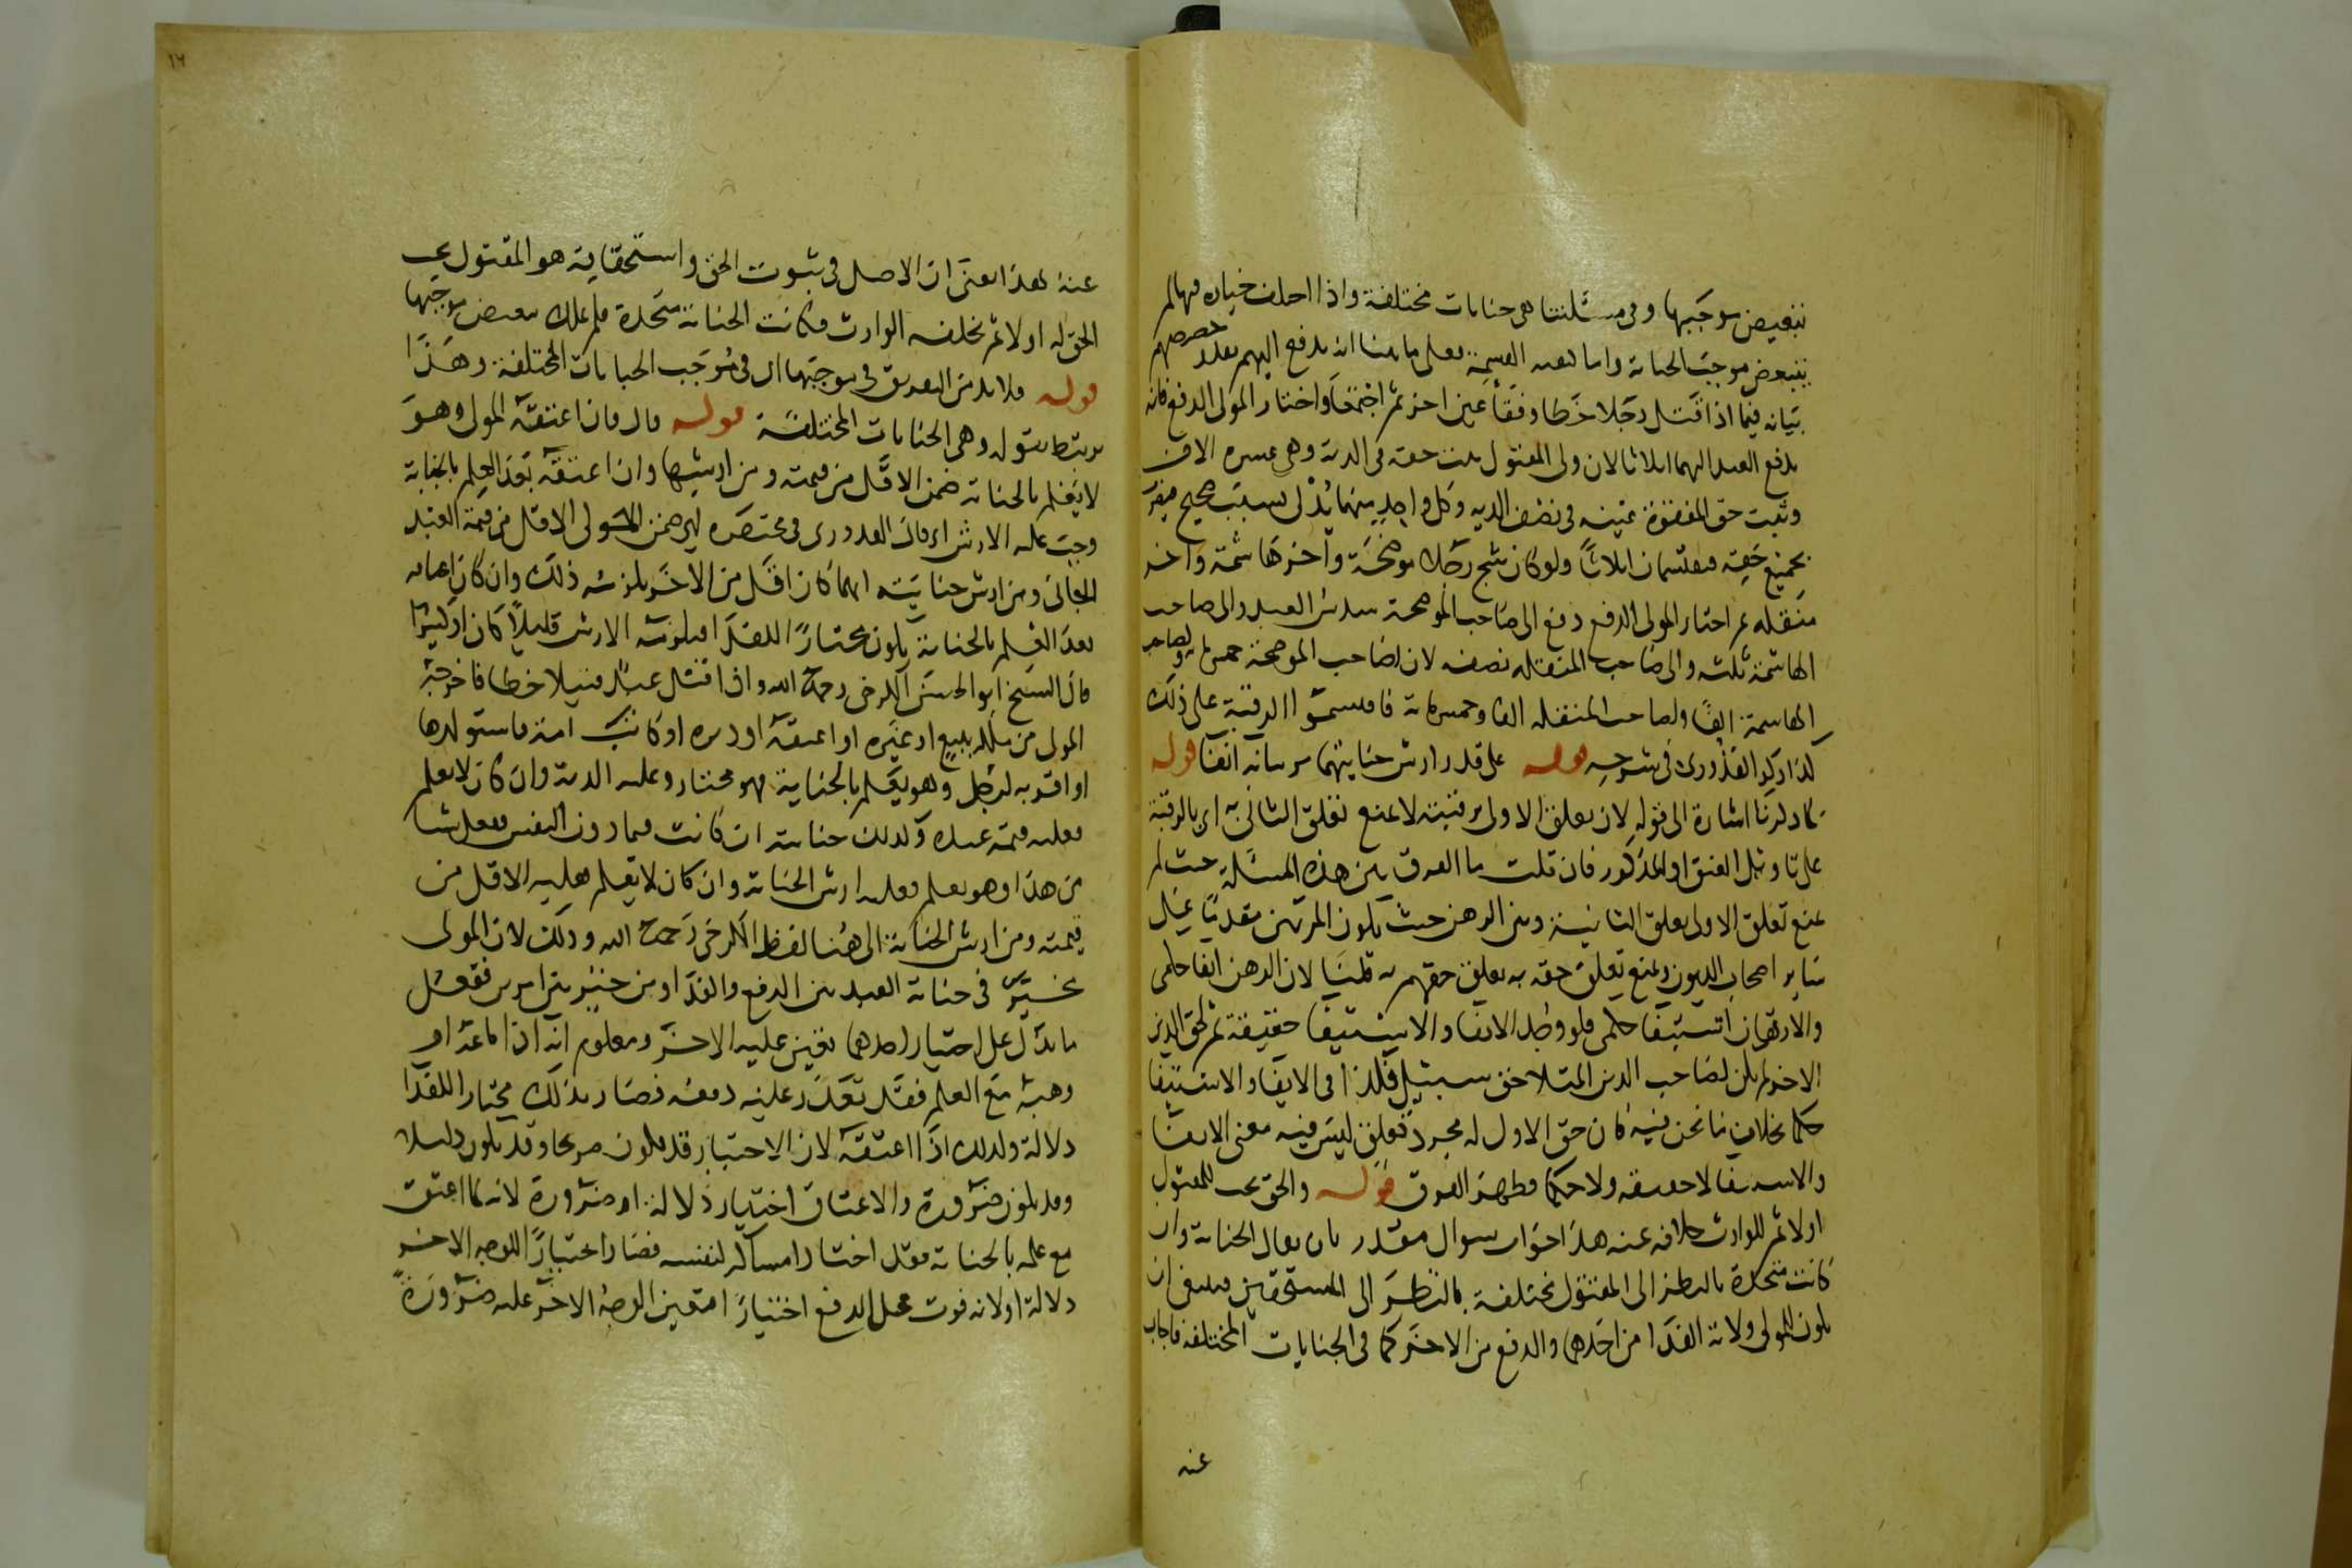 بتبعيض موجبها وفى مسئلتنا هى جنايات مختلفة واذا اختلف خياره فيها لم
يتبعض موجب الجناية واما كيفية القسمة فعلى ما بينا انه يدفع اليهم بقدر حصصهم
بيانه فيما اذا قتل رجلا خطا وفقأ عين اخر ثم اجتمعا واختار المولى الدفع فانه
يدفع العبد اليهما اثلاثا لان ولى المقتول يثبت حقه فى الدية وهى عشرة الاف
وثبت حق المفقوءة عينه فى نصف الدية وكل واحد منهما يدلى بسبب صحيح فيضرب
بجميع حقه فيقتسمان اثلاثا ولو كان شج رجلا موضحة واخر هاشمة واخر
منقلة ثم اختار المولى الدفع دفع الى صاحب الموضحة سدس العبد والى صاحب
الهاشمة ثلثه والى صاحب المنقلة نصفه لان لصاحب الموضحة خمس مائة ولصاحب
الهاشمة الفا ولصاحب المنقلة الفا وخمس مائة فاقتسموا الرقبة على ذلك
كذا ذكر القدورى فى شرحه قوله على قدر ارش جنايتهما مر بيانه انفا قوله
كما ذكرنا اشارة الى قوله لان تعلق الاولى برقبته لا يمنع تعلق الثانى به اى بالرقبة
على تاويل العنق او المذكور فان قلت ما الفرق بين هذه المسئلة حيث لم
يمنع تعلق الاولى تعلق الثانية وبين الرهن حيث يكون المرتهن مقدما على
ساير اصحاب الديون ويمنع تعلق حقه به تعلق حقهم به قلنا لان الرهن ايفا حكمى
والارتهان استيفا حكمى فلو وجد الايفا والاستيفا حقيقة ثم لحق الدين
الاخر لم يكن لصاحب الدين المتلاحق سبيل فكذا فى الايفا والاستيفا
حكما بخلاف ما نحن فيه كان حق الاول له مجرد تعلق ليس فيه معنى الايفا
والاستيفا لا حقيقة ولا حكما فظهر الفرق قوله والحق يجب للمقتول
اولا ثم للوارث خلافة عنه هذا جواب سوال مقدر بان يقال الجناية وان
كانت متحدة بالنظر الى المقتول مختلفة بالنظر الى المستحقين فينبغى ان
يكون للمولى ولاية الفدا من احدهما والدفع من الاخر كما فى الجنايات المختلفة فاجاب
عنه
١٦
عنه بهذا يعنى ان الاصل فى ثبوت الحق واستحقاقية هو المقتول يجب
الحق له اولا ثم يخلفه الوارث فكانت الجناية متحدة فلم يملك تبعيض موجبها
قوله فلا بد من التفريق فى موجبها اى فى موجب الجنايات المختلفة وهذا
مرتبط بقوله وهى الجنايات المختلفة قوله قال فان اعتقه المولى وهو
لا يعلم بالجناية ضمن الاقل من قيمته ومن ارشها وان اعتقه بعد العلم بالجناية
وجب عليه الارش اى قال القدورى فى مختصره ضمن المولى الاقل من قيمة العبد
الجانى ومن ارش جنايته ايهما كان اقل من الاخر يلزمه ذلك وان كان اعتاقه
بعد العلم بالجناية يكون مختارا للفدا فيلزمه الارش قليلا كان او كثيرا
قال الشيخ ابو الحسن الكرخى رحمه الله واذا قتل عبد قتيلا خطا فاخرجه
المولى من ملكه ببيع او غيره او اعتقه او دبره او كانت امة فاستولدها
او اقر به لرجل وهو يعلم بالجناية فهو مختار وعليه الدية وان كان لا يعلم
فعليه قيمة عبده وكذلك جنايته ان كانت فيما دون النفس ففعل شيا
من هذا وهو يعلم فعليه ارش الجناية وان كان لا يعلم فعليه الاقل من
قيمته ومن ارش الجناية الى هنا لفظ الكرخى رحمه الله وذلك لان المولى
يخير فى جناية العبد بين الدفع والفدا ومن خير بين امرين ففعل
ما يدل على اختيار احدهما تعين عليه الاخر ومعلوم انه اذا باعه او
وهبه مع العلم فقد تعذر عليه دفعه فصار بذلك مختارا للفدا
دلالة وكذلك اذا اعتقه لان الاختيار قد يكون صريحا وقد يكون دليلا
وقد يكون ضرورة والاعتاق اختيار دلالة او ضرورة لانه لما اعتق
مع علمه بالجناية فقد اختار امساكه لنفسه فصار اختيارا للوجه الاخر
دلالة او لانه فوت محل الدفع اختيارا فتعين الوجه الاخر عليه ضرورة